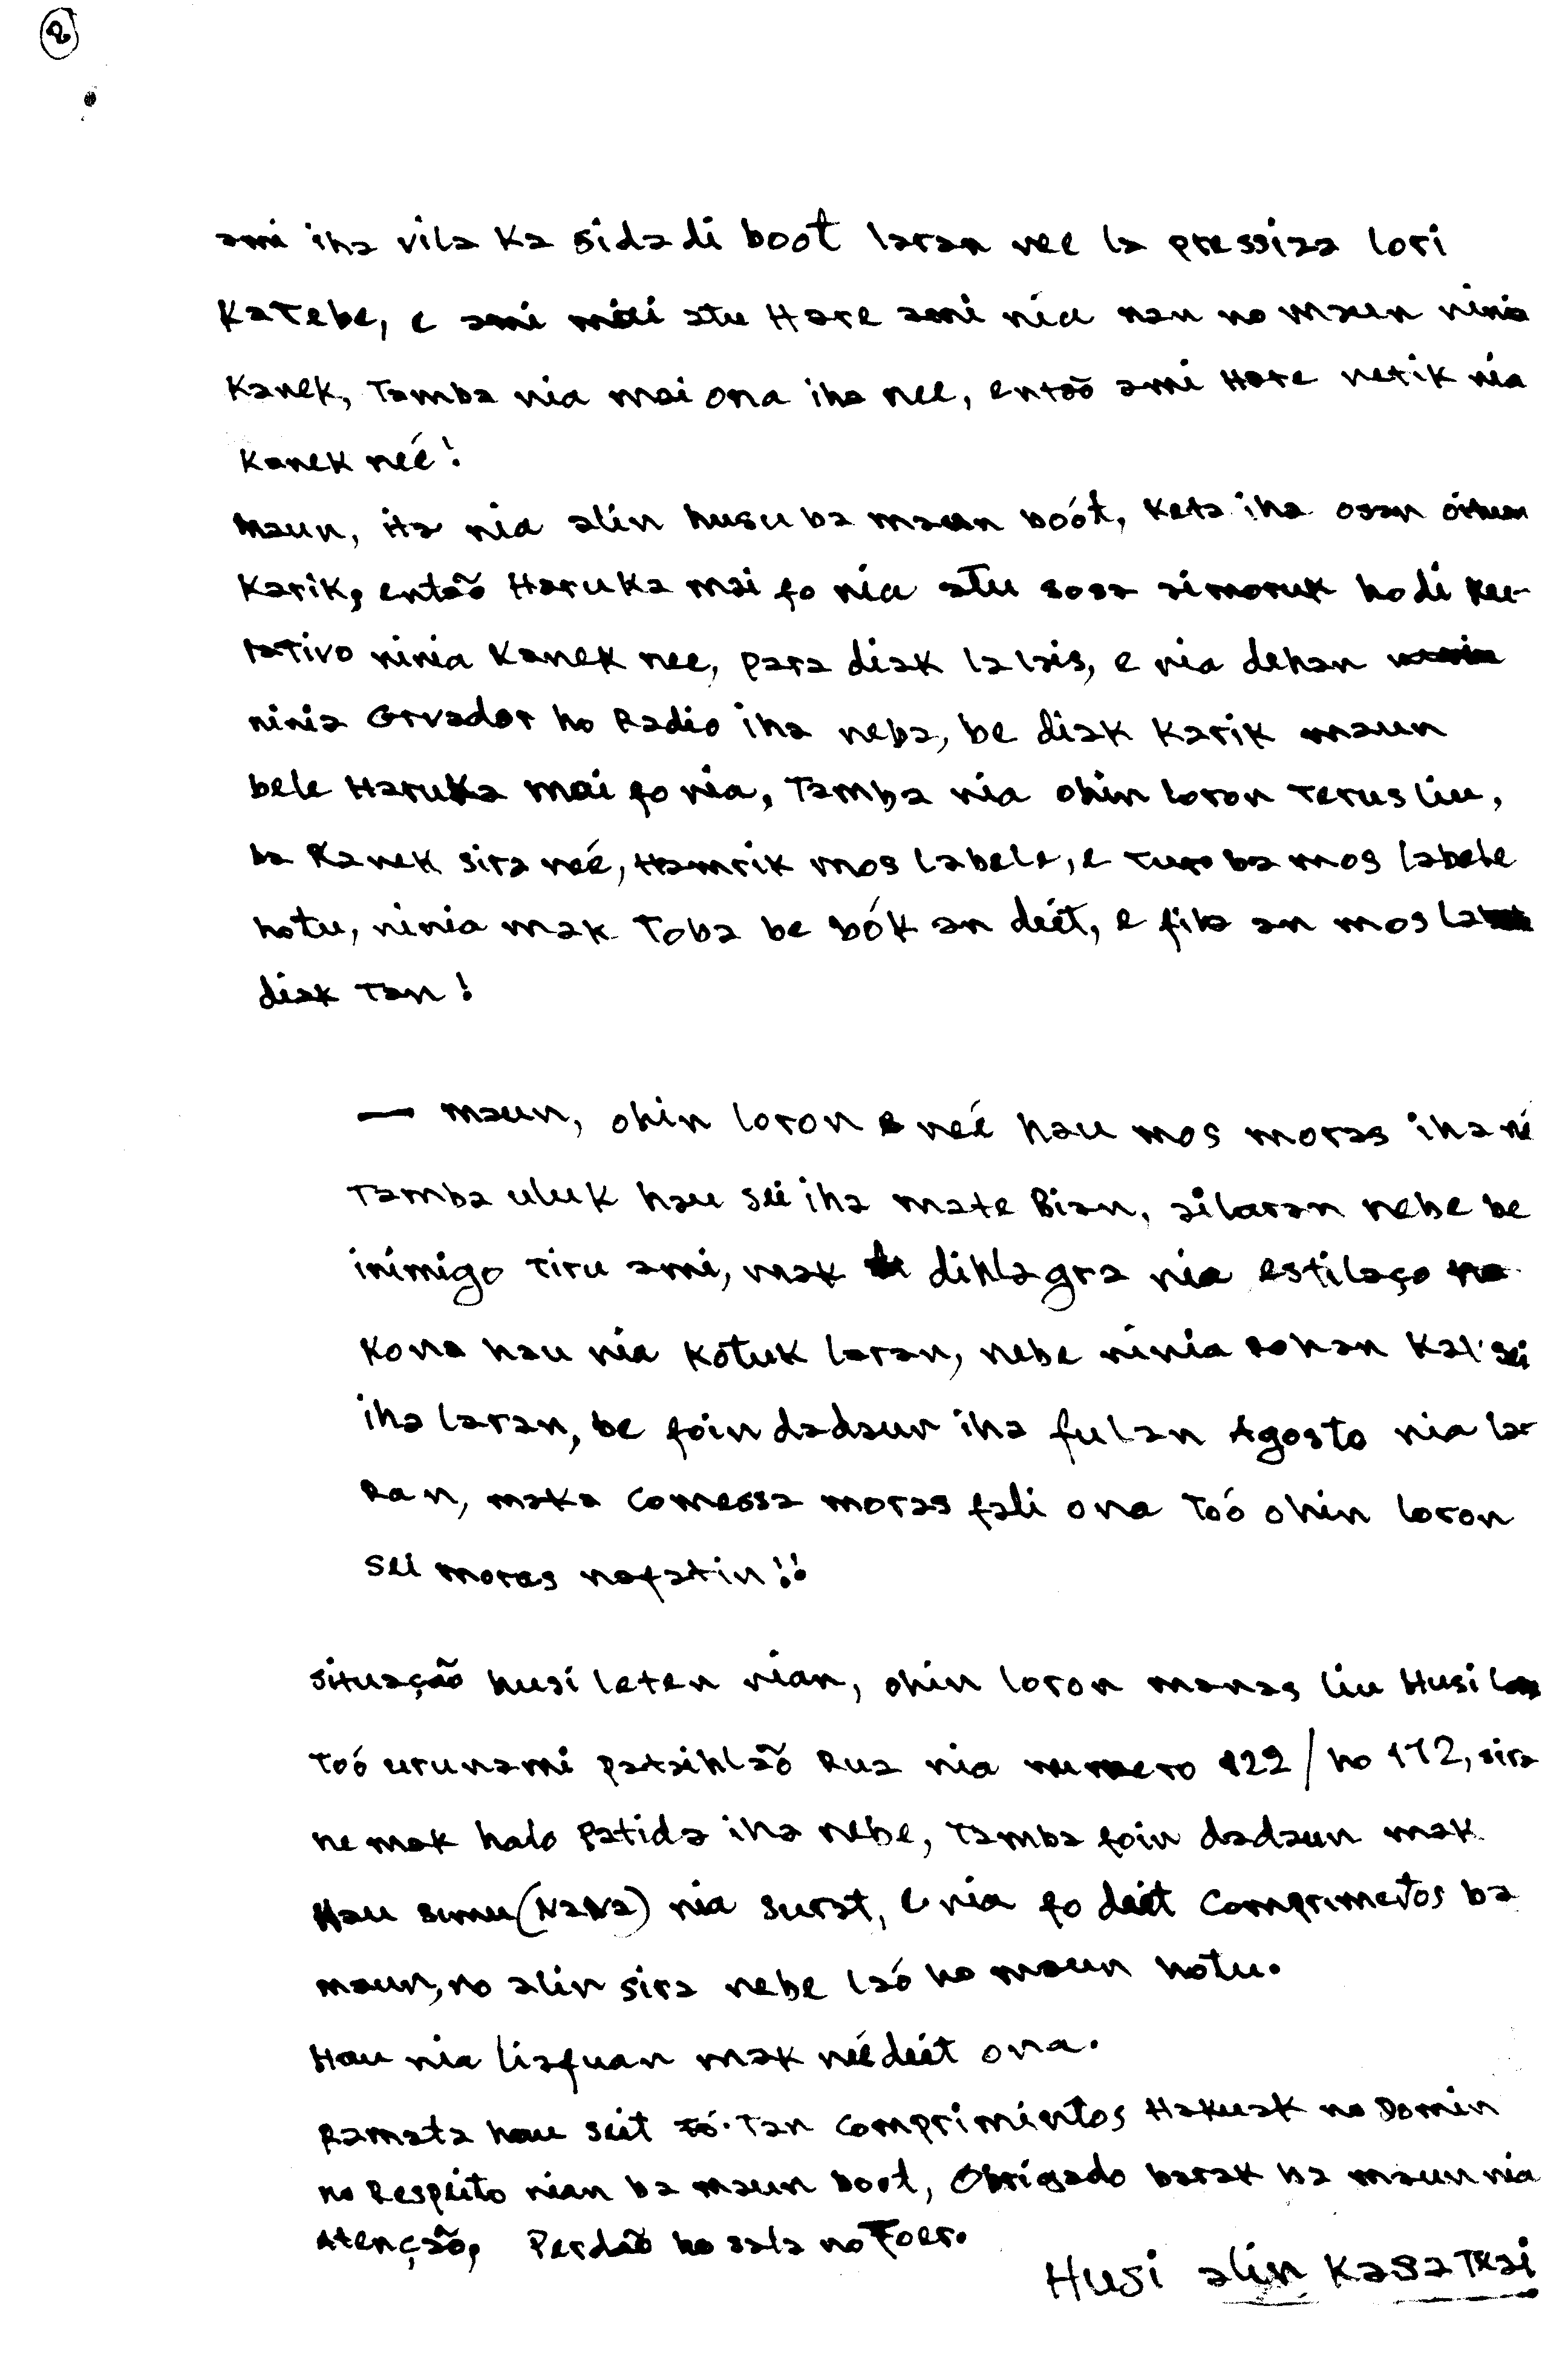 2
ami iha vila ka sidadi boot laran nee la pressiza lori
Katebe, e ami mai atu Hare ami nia nan no maun ninia
Kanek, Tamba nia mai ona iha nee, então ami Hare netik nia
Kanek neé!
Maun, ita nia alin husu ba maun boót, Keta iha osan órium
Karik, então Haruka mai fo nia atu sosa aimoruk hodi Ku-
rativo ninia Kanek nee, para diak lalais, e nia dehan
ninia Grvador ho Radio iha neba, be diak Karik maun
bele Haruka mai fo nia, Tamba nia ohin loron Terus liu,
ba Kanek sira neé, Hamrik mos labele, e Tur ba mos labele
hotu, ninia mak Toba be bók an deét, e fila an mos la
diak Tan!
— Maun, ohin loron neé hau mos moras iha né
Tamba uluk hau sei iha mate Bian, ailaran nebe be
inimigo Tiru ami, mak dihlagra nia estilaço
Kona hau nia Kotuk laran, nebe ninia rohan Kal sei
iha laran, be foin dadaun iha fulan Agosto nia la-
Ran, maka Comessa moras fali ona Toó ohin loron
sei moras nafatin!!
Situação husi leten nian, ohin loron manas liu Husi
Toó urunami pataihlaõ Rua nia numero 122 / ho 112, sira
ne mak halo Patida iha nebe, Tamba foin dadaun mak
Hau simu (NaNa) nia surat, e nia fo deét Comprimetos ba
maun, no alin sira nebe laó ho maun hotu.
Hau nia liafuan mak neé deét ona.
Ramata hau seit tó. Tan Comprimintos Hakuak no Domin
no Respeito nian ba maun boot, Obrigado barak ba maun nia
Atenção, Perdão ho sala no Foer.
Husi alin Kasa Tkai